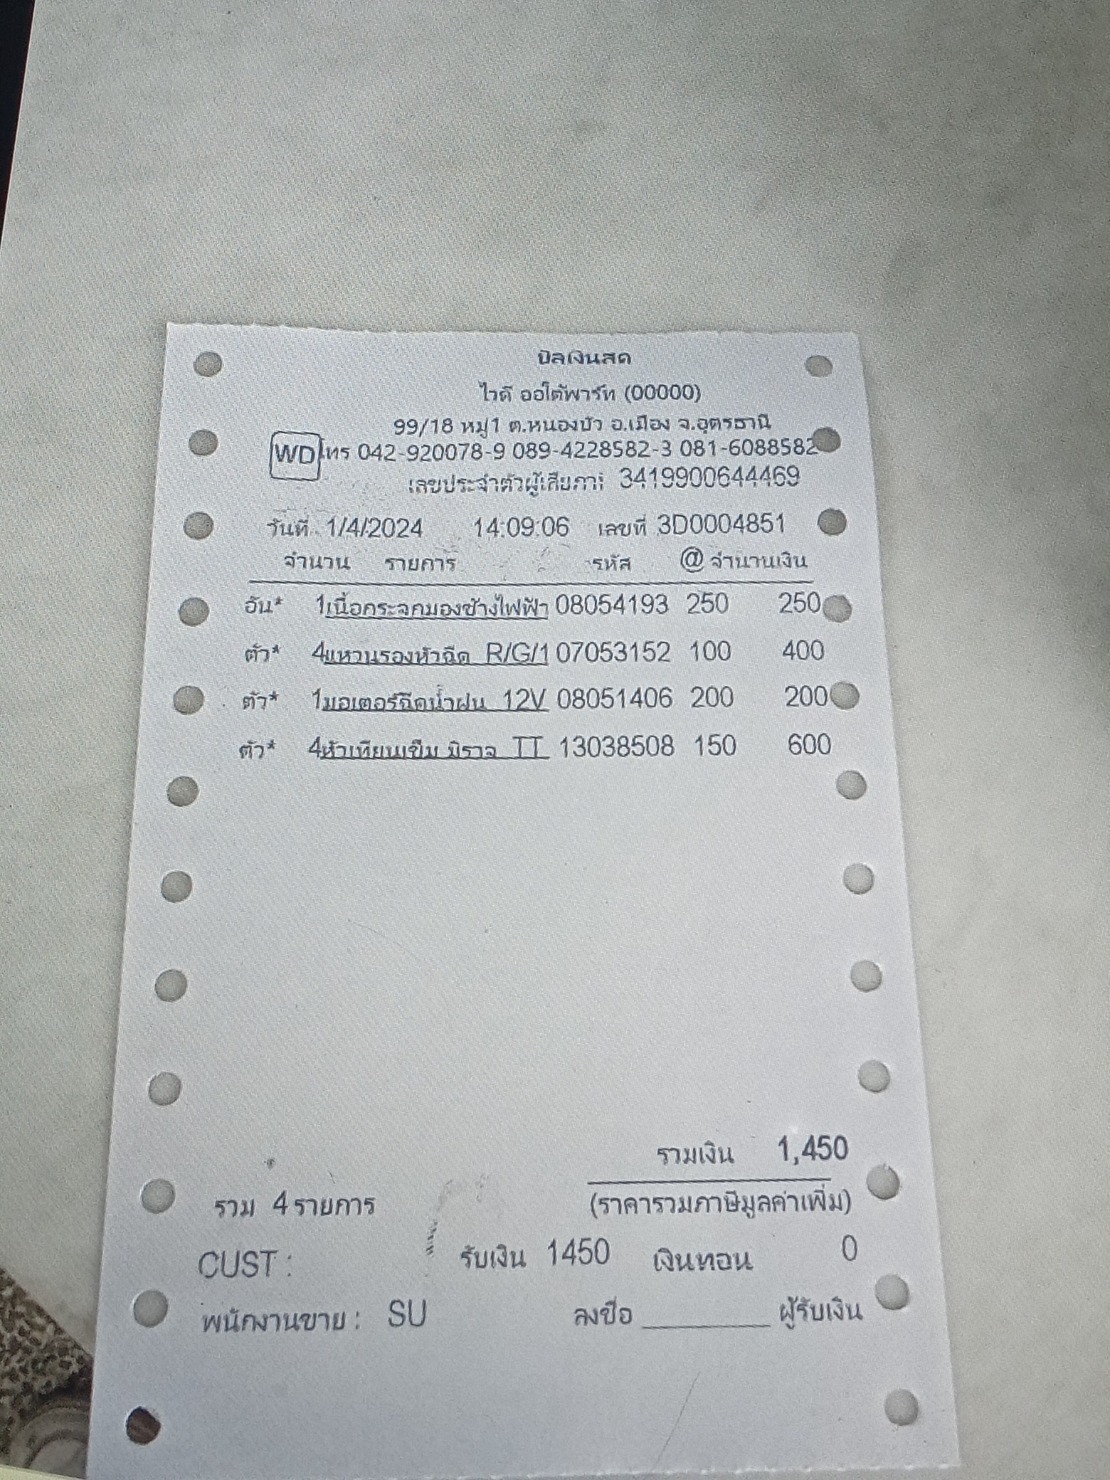 บิลเงินสด
ไวดี ออโต้พาร์ท (00000)
99/18 หมู่1 ต.หนองบัว อ.เมือง จ.อุดรธานี
WD โทร 042-920078-9 089-4228582-3 081-6088582
เลขประจำตัวผู้เสียภาษี 3419900644469
วันที่ 1/4/2024 14:09:06 เลขที่ 3D0004851
จำนวน รายการ รหัส @ จำนวนเงิน
อัน* 1เนื้อกระจกมองข้างไฟฟ้า 08054193 250 250
ตัว* 4แหวนรองหัวฉีด R/G/1 07053152 100 400
ตัว* 1มอเตอร์ฉีดน้ำฝน 12V 08051406 200 200
ตัว* 4หัวเทียนเข็ม มิราจ TT 13038508 150 600
รวมเงิน 1,450
รวม 4 รายการ (ราคารวมภาษีมูลค่าเพิ่ม)
CUST : รับเงิน 1450 เงินทอน 0
พนักงานขาย : SU ลงชื่อ ________ ผู้รับเงิน